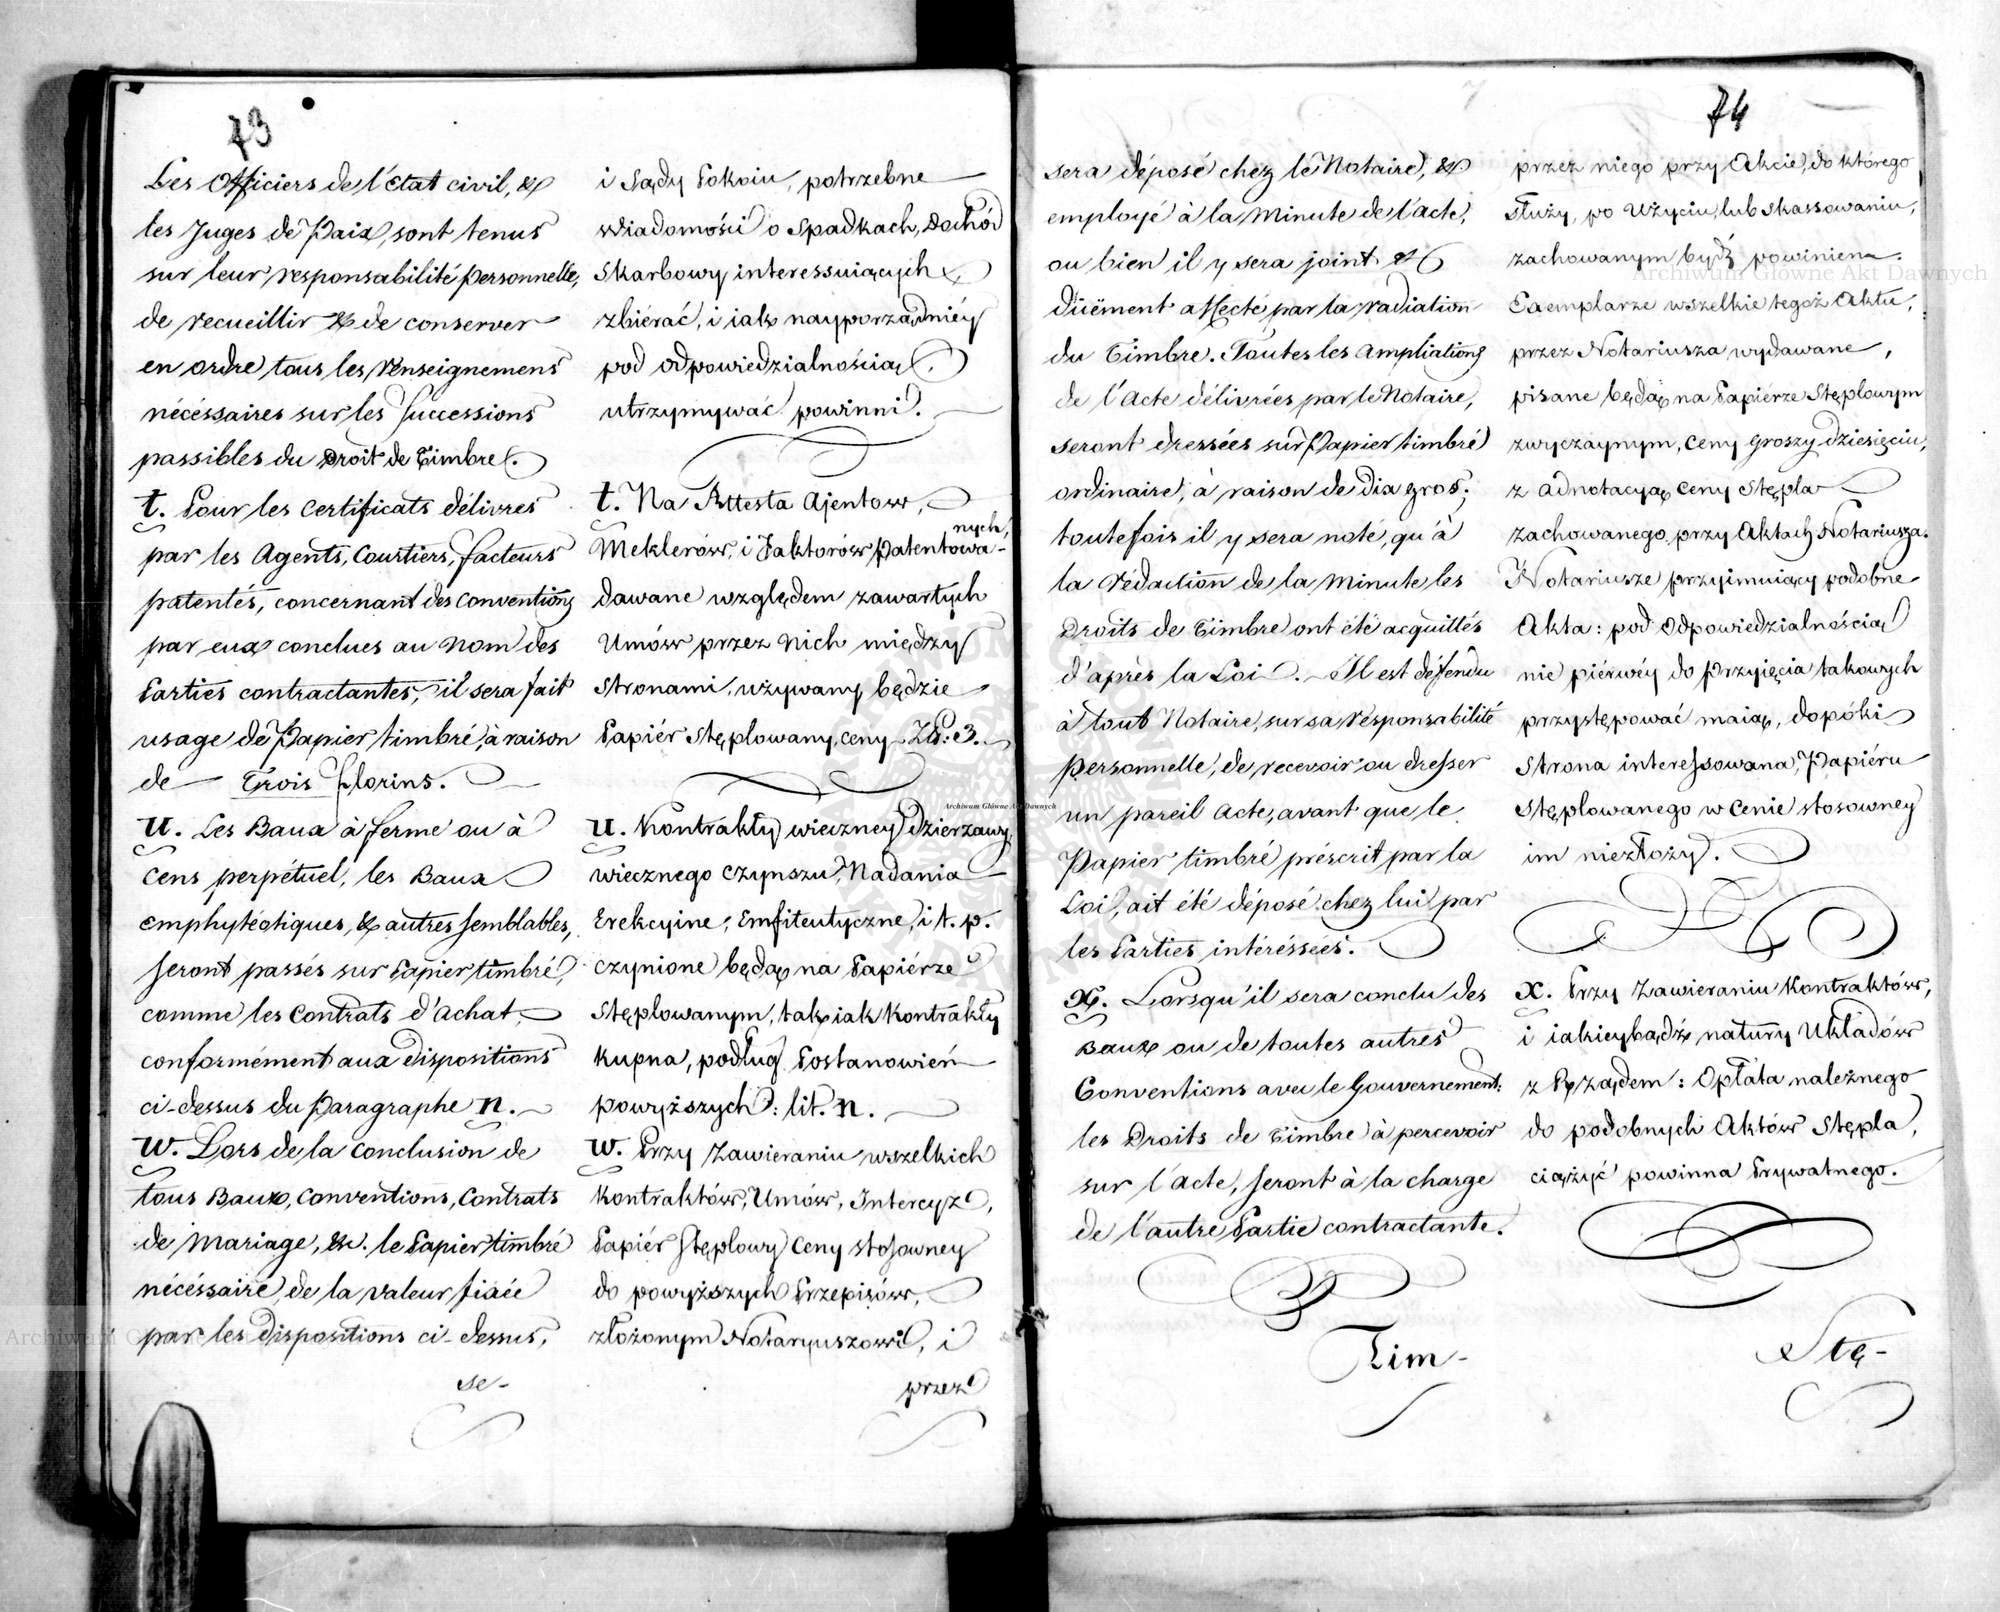 73
Les Officiers de l'état civil, &
les Juges de Paix, sont tenus
sur leur responsabilité personnelle,
de recueillir & de conserver
en ordre tous les renseignemens
nécéssaires sur les Successions
passibles du Droit de Timbre.
t. Pour les Certificats délivrés
par les Agents, Courtiers, facteurs
patentés, concernant des conventions
par eux conclues au nom des
Parties contractantes, il sera fait
usage de Papier timbré, à raison
de Trois florins.
u. Les Baux à ferme ou à
Cens perpétuel, les Baux
emphytéotiques, & autres semblables,
seront passés sur Papier timbré,
comme les Contrats d'Achat,
conformément aux dispositions
ci-dessus du Paragraphe n.
w. Lors de la Conclusion de
tous Baux, Conventions, Contrats
de Mariage, &c. le Papier timbré
nécéssaire, de la valeur fixée
par les dispositions ci-dessus,
se-
i Sądy Pokoiu, potrzebne
wiadomości o Spadkach, Dochód
Skarbowy interessuiących
zbiérać, i iak nayporządniéy
pod odpowiedzialnością
utrzymywać powinni.
t. Na Attesta Ajentow,
Meklerów, i Faktorów Patentowa-
nych,
dawane względem zawartych
Umów przez nich między
Stronami, używany będzie
Papiér Stęplowany, ceny Zł: 3.
u. Kontrakty wieczney dzierzawy,
wiecznego Czynszu, Nadania
Erekcyine, Emfiteutyczne, i t. p.
czynione będą na Papiérze
Stęplowanym, tak iak Kontrakty
Kupna, podług Postanowień
powyższych: lit. n.
w. Przy Zawieraniu wszelkich
Kontraktów, Umów, Intercyz,
Papiér Stęplowy Ceny stosowney
do powyższych Przepisów,
złożonym Notaryuszowi, i
przez
74
sera déposé chez le Notaire, &
employé à la Minute de l'acte,
ou bien il y sera joint &
düëment affecté par la radiation
du Timbre. Toutes les Ampliations
de l'Acte délivrées par le Notaire,
seront dressées sur Papier timbré
ordinaire, à raison de dix gros;
toutefois il y sera noté, qu'à
la rédaction de la Minute les
Droits de Timbre ont été acquittés
d'après la Loi. Il est défendu
à tout Notaire, sur sa résponsabilité
personnelle, de recevoir ou dresser
un pareil Acte, avant que le
Papier timbré préscrit par la
Loi, ait été déposé chez lui par
les Parties intéréssées.
x. Lorsqu'il sera conclu des
Baux ou de toutes autres
Conventions avec le Gouvernement:
les Droits de Timbre à percevoir
sur l'Acte, seront à la charge
de l'autre Partie contractante.
Tim-
przez niego przy Akcie, do którego
służy, po Użyciu, lub Skassowaniu,
zachowanym bydź powinien.
Exemplarze wszelkie tegoż Aktu,
przez Notariusza wydawane,
pisane będą na Papiérze Stęplowym
zwyczaynym, Ceny groszy dziesięciu,
z adnotacyą Ceny Stępla
zachowanego przy Aktach Notariusza.
Notariusze przyimuiący podobne
Akta: pod Odpowiedzialnością
nie piérwéy do Przyięcia takowych
przystępować maią, dopóki
Strona interessowana, Papiéru
Stęplowanego w Cenie stosowney
im niezłoży.
x. Przy Zawieraniu Kontraktów,
i iakieybądź natury Układów
z Rządem: Opłata należnego
do podobnych Aktów Stępla,
ciążyć powinna Prywatnego.
Stę-
Archiwum Główne Akt Dawnych
Archiwum Główne Akt Dawnych